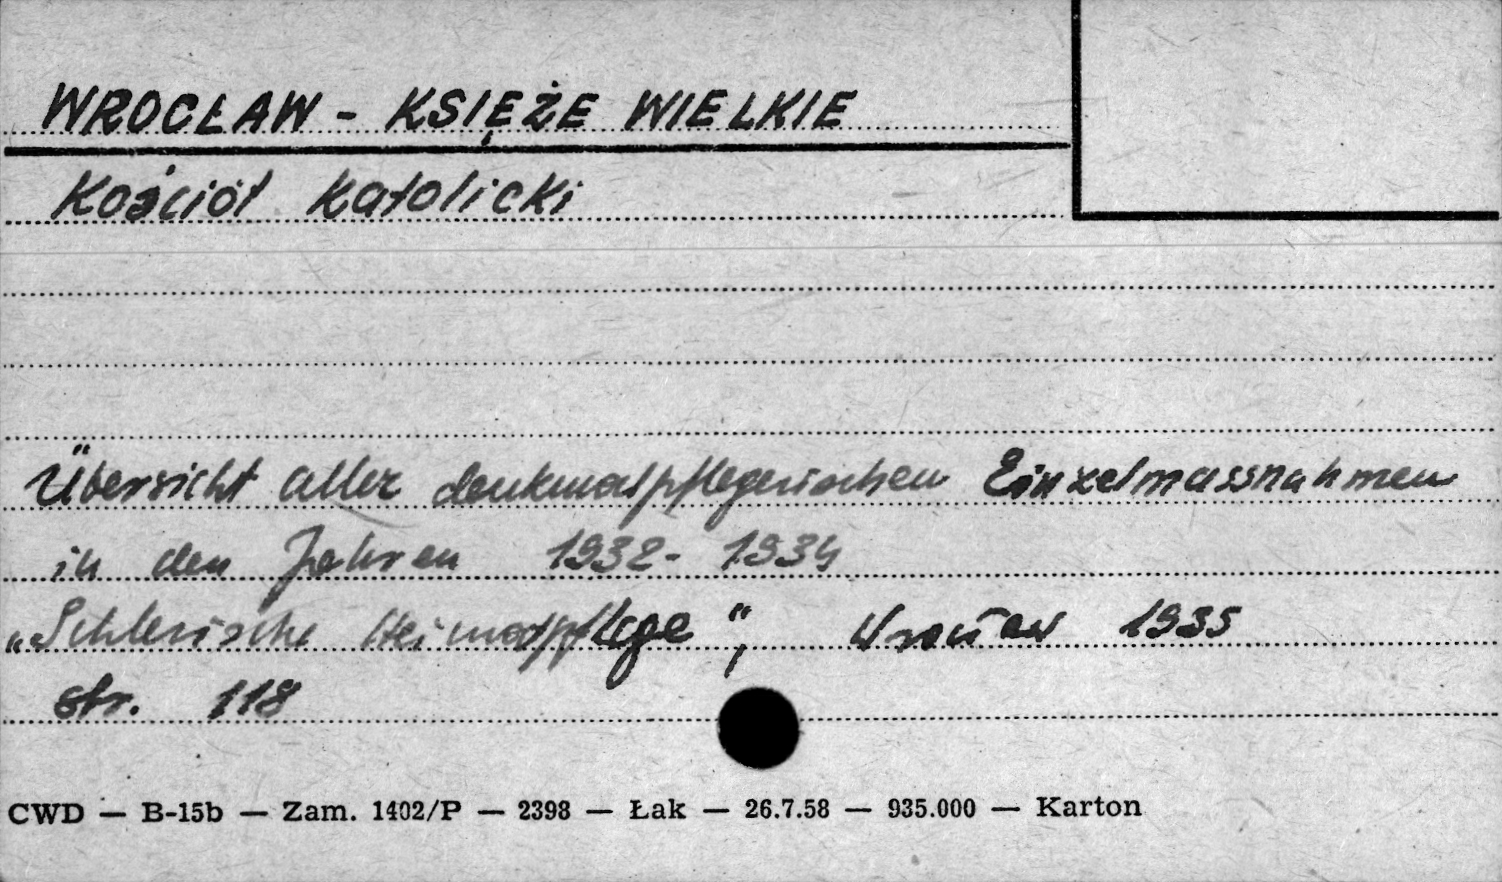 WROCŁAW - KSIĘŻE WIELKIE
Kościół Katolicki
Übersicht aller denkmalpflegerischen Einzelmassnahmen
in den Jahren 1932- 1934
„Schlesische Heimatpflege", Wrocław 1935
str. 118
CWD — B-15b — Zam. 1402/P — 2398 — Łak — 26.7.58 — 935.000 — Karton